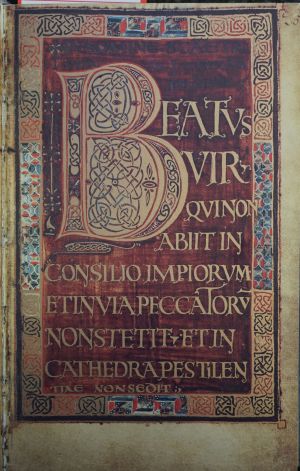 BEATVS
VIR
QVI NON
ABIIT IN
CONSILIO. IMPIORVM
ET IN VIA PECCATORV
NON STETIT ET IN
CATHEDRA PESTILEN
TIAE NON SEDIT: